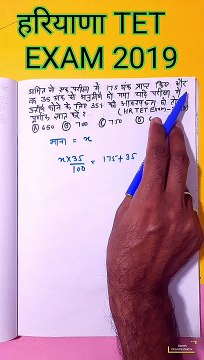 हरियाणा TET
EXAM 2019
अमित ने एक परीक्षा में 175 अंक प्राप्त किए और
वह 35 अंक से अनुत्तीर्ण हो गया यदि परीक्षा में
उत्तीर्ण होने के लिए 35% की आवश्यकता हो तो
पूर्णांक ज्ञात करें ? (HR TET Exam-
Ⓐ 650 Ⓑ 700 Ⓒ 750 Ⓓ
माना = x
x×35/100 = 175+35